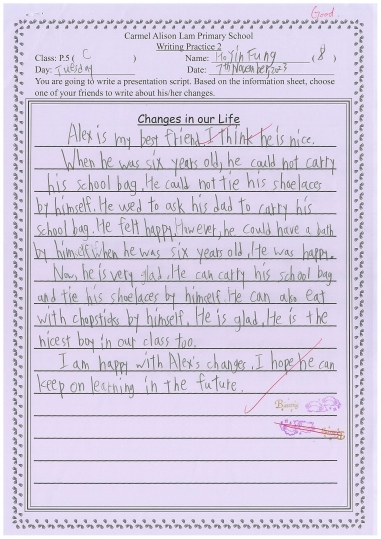 Good
Carmel Alison Lam Primary School
Writing Practice 2
Class: P.5 ( C ) Name: Ho Yin Fung ( 8 )
Day: Tuesday Date: 7th November, 2023
You are going to write a presentation script. Based on the information sheet, choose
one of your friends to write about his/her changes.
Changes in our Life
Alex is my best friend. I think he is nice.
When he was six years old, he could not carry
his school bag. He could not tie his shoelaces
by himself. He used to ask his dad to carry his
school bag. He felt happy. However, he could have a bath
by himself when he was six years old. He was happy.
Now, he is very glad. He can carry his school bag
and tie his shoelaces by himself. He can also eat
with chopsticks by himself. He is glad. He is the
nicest boy in our class too.
I am happy with Alex's changes. I hope he can
keep on learning in the future.